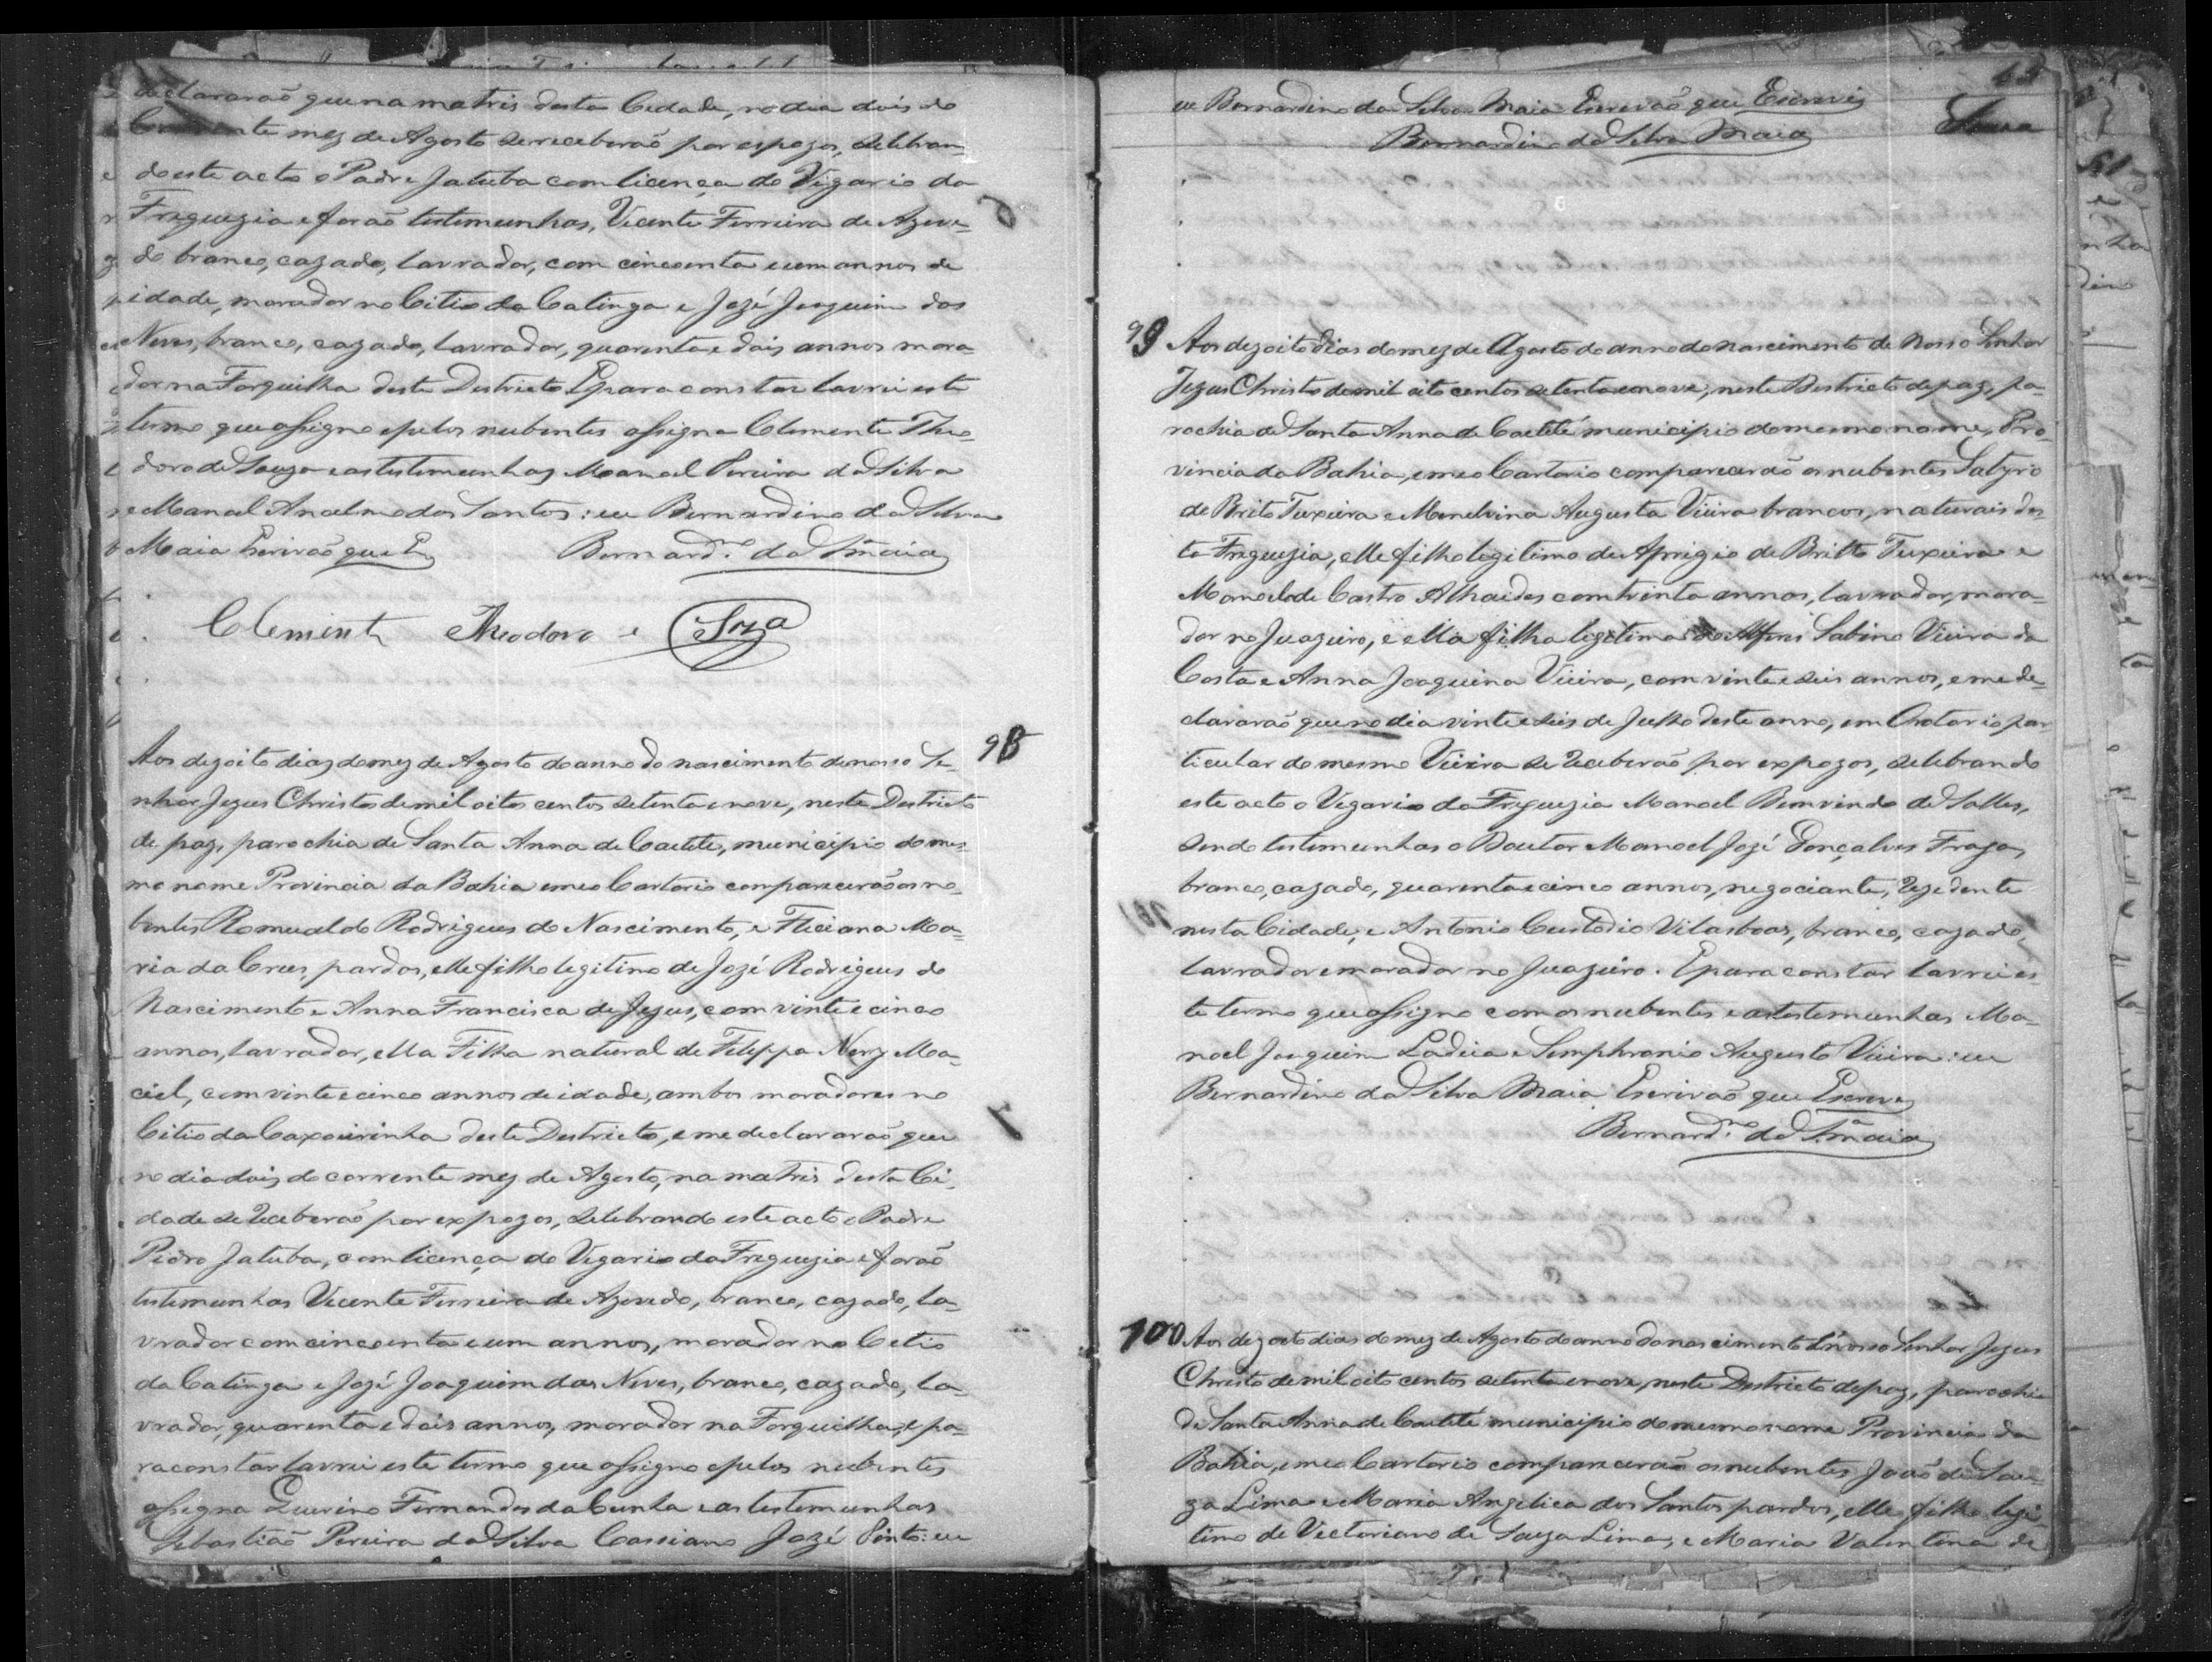 declararaõ que na matris desta Cidade, no dia dois do
Corrente mez de Agosto se receberaõ por espozos, selebran-
do este acto o Padre Jatuba com licença do Vigario da
Freguezia e foraõ testemunhas, Vicente Ferreira de Azeve-
do branco, cazado, lavrador, com cincoenta e um annos de
idade, morador no Citio da Catinga e Jozé Joaquim das
Neves, branco, cazado, lavrador, quarenta e dois annos mora-
dor na Forquilha deste Destricto E para constar lavrei este
termo que assigno e pelos nubentes assigna Clemente Theo-
doro de Souza e as testemunhas Manoel Pereira da Silva
e Manoel Ancelmo dos Santos: eu Bernardino da Silva
Maia Escrivaõ que E
Bernard.no da S.a Maia
Clement Theodoro e Soza
98
Aos dezoito dias do mez de Agosto do anno do nascimento de nosso Se-
nhor Jezus Christo de mil oito centos setenta e nove, neste Destricto
de paz, parochia de Santa Anna de Caetete, municipio do mes-
mo nome Provincia da Bahia em meo Cartorio compareceraõ os no-
bentes Romualdo Rodrigues do Nascimento, e Feliciana Ma-
ria da Crus, pardos, elle filho legitimo de Jozé Rodrigues do
Nascimento e Anna Francisca de Jezus, com vinte e cinco
annos, lavrador, ella Filha natural de Filippa Nery Ma-
ciel, com vinte e cinco annos de idade, ambos moradores no
Citio da Caxoeirinha deste Destricto, e me declararaõ que
no dia dois do corrente mez de Agosto, na matris desta Ci-
dade se receberaõ por espozos, selebrando este acto o Padre
Pedro Jatuba, com licença do Vigario da Freguezia e foraõ
testemunhas Vicente Ferreira de Azevedo, branco, cazado, la-
vrador com cincoenta e um annos, morador no Citio
da Catinga e Jozé Joaquim das Neves, branco, cazado, la-
vrador, quarenta e dois annos, morador na Forquilha, e pa-
ra constar lavrei este termo que assigno e pelos nubentes
assigna Querino Fernandes da Cunha e as testemunhas
Sebastiaõ Pereira da Silva Cassiano Jozé Pinto: eu
eu Bernardino da Silva Maia Escrivaõ que Escrevi
Bernardino da Silva Maia
Souza
99 Aos dezoito dias do mez de Agosto do anno do nascimento de Nosso Senhor
Jezus Christo de mil oito centos setenta e nove, neste Destricto de paz, pa-
rochia de Santa Anna de Caetité municipio do mesmo nome, Pro-
vincia da Bahia, em meo Cartorio compareceraõ os nubentes Satyro
de Brito Teixeira e Menelvina Augusta Vieira brancos, naturais des-
ta Freguezia, elle filho legitimo de Aprigio de Britto Teixeira e
Manoela de Castro Athaides com trinta annos, lavrador, mora-
dor no Juazeiro, e ella filha legitima do Alferes Sabino Vieira da
Costa e Anna Joaquina Vieira, com vinte e seis annos, e me de-
clararaõ que no dia vinte e seis de Julho deste anno, em Oratorio par-
ticular do mesmo Vieira se receberaõ por espozos, selebrando
este acto o Vegario da Freguezia Manoel Bemvindo de Salles,
sendo testemunhas o Doutor Manoel Jozé Gonçalves Fraga,
branco, cazado, quarenta e cinco annos, negociante, rezidente
nesta Cidade, e Antonio Custodio Vilasboas, branco, cazado,
lavrador e morador no Juazeiro. E para constar lavrei es-
te termo que assigno com os nubentes e as testemunhas Ma-
noel Joaquim Ladeia e Simphronio Augusto Vieira: eu
Bernardino da Silva Maia Escrivaõ que Escrevy
Bernard.no da S.a Maia
100 Aos dezoito dias do mez de Agosto do anno do nascimento de nosso Senhor Jezus
Christo de mil oito centos setenta e nove, neste Destricto de paz, parochia
de Santa Anna de Caetité municipio do mesmo nome Provincia da
Bahia, em meo Cartorio compareceraõ os nubentes Joaõ de Sou-
za Lima e Maria Angelica dos Santos pardos, elle filho legi-
timo de Victoriano de Souza Lima, e Maria Valentina de